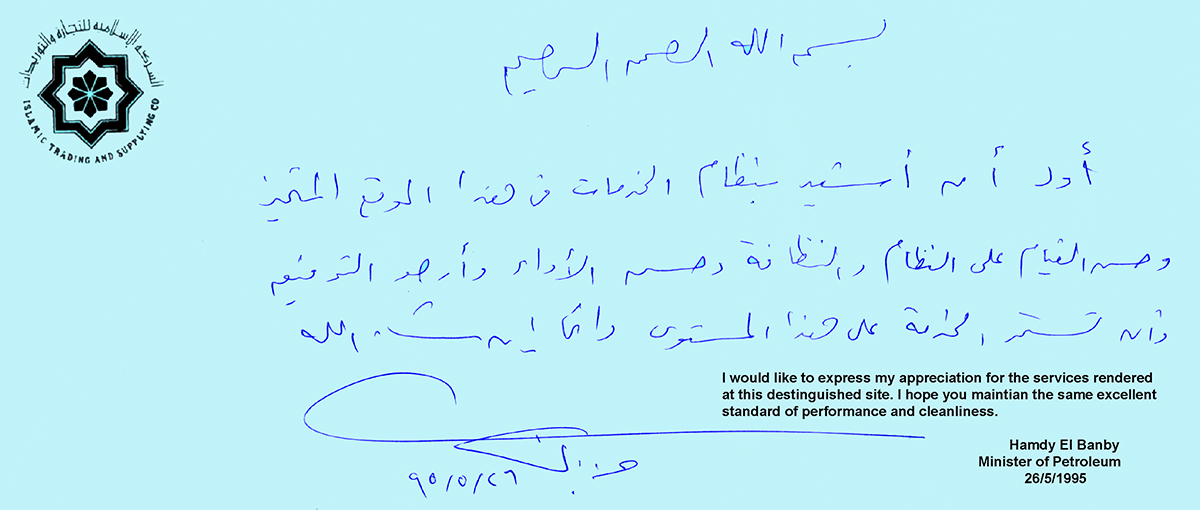 الشركة الإسلامية للتجارة والتوريدات
ISLAMIC TRADING AND SUPPLYING CO
بسم الله الرحمن الرحيم
أود أن أشيد بنظام الخدمات فى هذا الموقع المتميز
وحسن القيام على النظام والنظافة وحسن الأداء وأرجو التوفيق
وأن تستمر الخدمة على هذا المستوى دائما إن شاء الله
٩٥/٥/٢٦
I would like to express my appreciation for the services rendered
at this destinguished site. I hope you maintian the same excellent
standard of performance and cleanliness.
Hamdy El Banby
Minister of Petroleum
26/5/1995